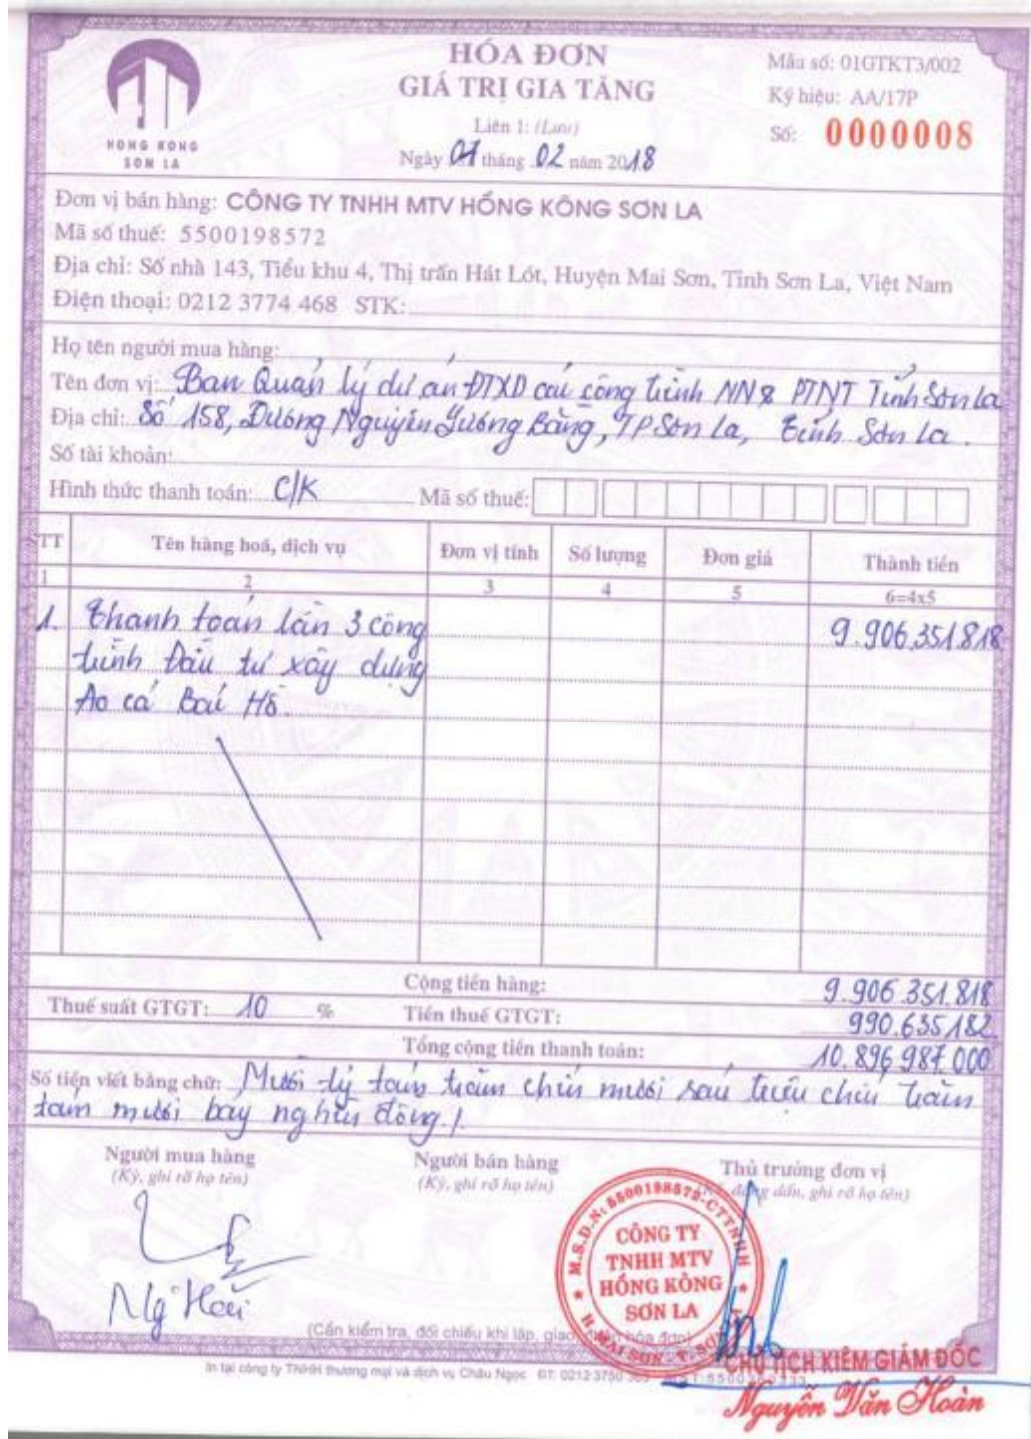 HONG KONG
SON LA
HÓA ĐƠN
GIÁ TRỊ GIA TĂNG
Liên 1: (Lưu)
Ngày 01 tháng 02 năm 2018
Mẫu số: 01GTKT3/002
Ký hiệu: AA/17P
Số: 0000008
Đơn vị bán hàng: CÔNG TY TNHH MTV HỒNG KÔNG SƠN LA
Mã số thuế: 5500198572
Địa chỉ: Số nhà 143, Tiểu khu 4, Thị trấn Hát Lót, Huyện Mai Sơn, Tỉnh Sơn La, Việt Nam
Điện thoại: 0212 3774 468 STK:
Họ tên người mua hàng:
Tên đơn vị: Ban Quản lý dự án ĐTXD các công trình NN & PTNT Tỉnh Sơn La
Địa chỉ: Số 158, Đường Nguyễn Lương Bằng, TP Sơn La, tỉnh Sơn La.
Số tài khoản:
Hình thức thanh toán: C/K Mã số thuế:
STT Tên hàng hoá, dịch vụ Đơn vị tính Số lượng Đơn giá Thành tiền
1 2 3 4 5 6=4x5
1. Thanh toán lần 3 công 9.906.351.818
trình Đầu tư xây dựng
Ao cá Bác Hồ.
Cộng tiền hàng: 9.906.351.818
Thuế suất GTGT: 10 % Tiền thuế GTGT: 990.635.182
Tổng cộng tiền thanh toán: 10.896.987.000
Số tiền viết bằng chữ: Mười tỷ tám trăm chín mươi sáu triệu chín trăm
tám mươi bảy nghìn đồng /.
Người mua hàng Người bán hàng Thủ trưởng đơn vị
(Ký, ghi rõ họ tên) (Ký, ghi rõ họ tên) đóng dấu, ghi rõ họ tên)
M.S.D.N: 5500198572-C.T.TNHH
CÔNG TY
TNHH MTV
HỒNG KÔNG
SƠN LA
H. MAI SƠN - T. SƠN
(Cần kiểm tra, đối chiếu khi lập, giao, nhận hóa đơn)
CHỦ TỊCH KIÊM GIÁM ĐỐC
In tại công ty TNHH thương mại và dịch vụ Châu Ngọc ĐT: 0212 3750
Nguyễn Văn Hoàn